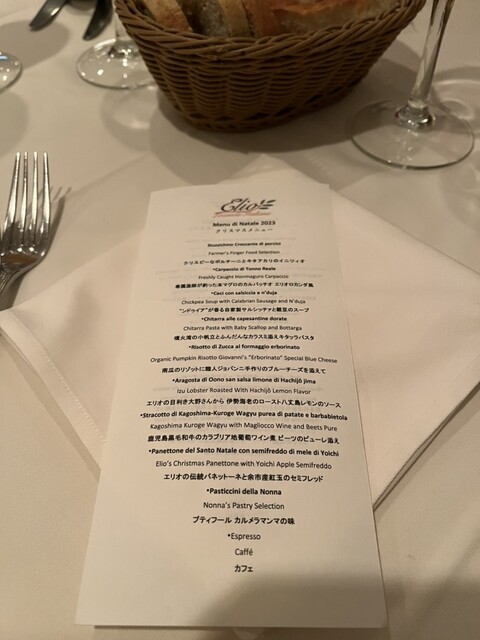 Elio
Locanda Italiana
Menu di Natale 2023
クリスマスメニュー
Stuzzichino Croccante di porcini
Farmer's Finger Food Selection
クリスピーなポルチーニとキタアカリのイニツィオ
•Carpaccio di Tonno Reale
Freshly Caught Honmaguro Carpaccio
希風漁師が釣った本マグロのカルパッチオ エリオロカンダ風
•Ceci con salsiccia e n'duja
Chickpea Soup with Calabrian Sausage and N'duja
"ンドゥイア"が香る自家製サルシッチャと雛豆のスープ
•Chitarra alle capesantine dorate
Chitarra Pasta with Baby Scallop and Bottarga
噴火湾の小帆立とふんだんなカラスミ添えキタッラパスタ
•Risotto di Zucca al formaggio erborinato
Organic Pumpkin Risotto Giovanni's "Erborinato" Special Blue Cheese
南瓜のリゾットに職人ジョバンニ手作りのブルーチーズを添えて
•Aragosta di Oono san salsa limone di Hachijō jima
Izu Lobster Roasted With Hachijō Lemon Flavor
エリオの目利き大野さんから 伊勢海老のロースト八丈島レモンのソース
•Stracotto di Kagoshima-Kuroge Wagyu purea di patate e barbabietola
Kagoshima Kuroge Wagyu with Magliocco Wine and Beets Pure
鹿児島黒毛和牛のカラブリア地葡萄ワイン煮 ビーツのピューレ添え
•Panettone del Santo Natale con semifreddo di mele di Yoichi
Elio's Christmas Panettone with Yoichi Apple Semifreddo
エリオの伝統パネットーネと余市産紅玉のセミフレッド
•Pasticcini della Nonna
Nonna's Pastry Selection
プティフール カルメラマンマの味
•Espresso
Caffé
カフェ